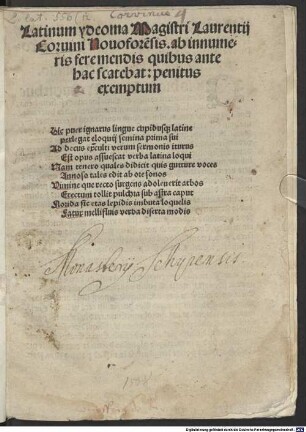 Corvinus
Latinum ydeoma Magistri Laurentij
Corvini Novoforēsis. ab innume⸗
ris fere mendis quibus ante
hac scatebat: penitus
exemptum
Hic puer ignarus lingue cupidusq latine
perlegat eloquij semina prima sui
Ad decus verum sermonis iturus
Est opus assuescat verba latina loqui
Nam tenero quales didicit quis gutture voces
Annosa tales edit ab ore sonos
Vimine que recto surgens adoleverit arbos
Erectum tollit pulchra sub astra caput
Florida sic etas lepidis imbuta loquelis
Fatur mellifluis verba diserta modis
Monasterij Schyrensis